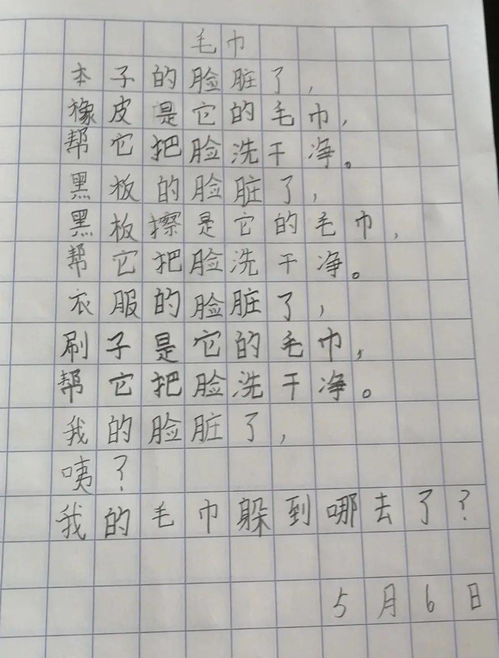 毛巾
本子的脸脏了，
橡皮是它的毛巾，
帮它把脸洗干净。
黑板的脸脏了，
黑板擦是它的毛巾，
帮它把脸洗干净。
衣服的脸脏了，
刷子是它的毛巾，
帮它把脸洗干净。
我的脸脏了，
咦？
我的毛巾躲到哪去了？
5月6日